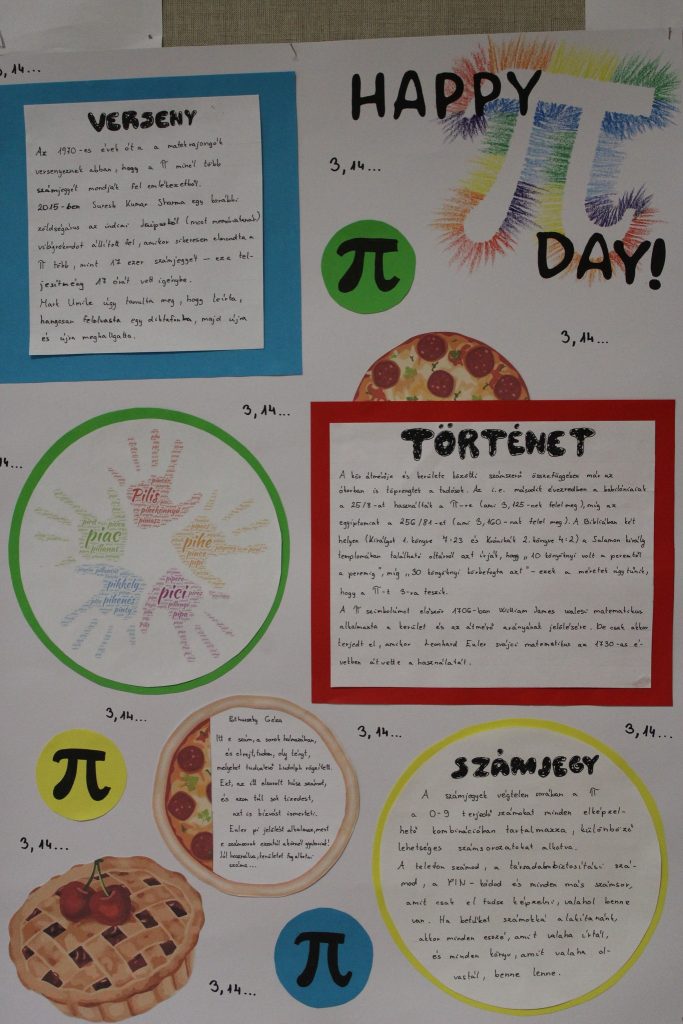 3, 14...
HAPPY
π
DAY!
3, 14...
π
VERSENY
Az 1970-es évek óta a matekrajongók
versenyeznek abban, hogy a π minél több
számjegyét mondják fel emlékezetből.
2015-ben Suresh Kumar Sharma egy korábbi
zöldségárus az indiai Jaipurból (most memóriatanár)
világrekordot állított fel, amikor sikeresen elmondta a
π több, mint 17 ezer számjegyét – ez a tel-
jesítmény 17 órát vett igénybe.
Mark Umile úgy tanulta meg, hogy leírta,
hangosan felolvasta egy diktafonba, majd újra
és újra meghallgatta.
3, 14...
3, 14...
14...
Pilis
pihekönnyű
piac
pillanat
pihe
pince
pikkely
pihenés
pici
TÖRTÉNET
A kör átmérője és kerülete közötti számszerű összefüggésen már az
ókorban is töprengtek a tudósok. Az i.e. második évezredben a babilóniaiak
a 25/8-ot használták a π-re (ami 3,125-nek felel meg), míg az
egyiptomiak a 256/81-et (ami 3,160-nak felel meg). A Bibliában két
helyen (Királyok 1. könyve 7:23 és Krónikák 2. könyve 4:2) a Salamon király
templomában található oltárról azt írják, hogy „10 könyöknyi volt a peremtől
a peremig", míg „30 könyöknyi körbefogta azt" – ezek a méretek úgy tűnik,
hogy a π-t 3-ra teszik.
A π szimbólumot először 1706-ban William James walesi matematikus
alkalmazta a kerület és az átmérő arányának jelölésére. De csak akkor
terjedt el, amikor Leonhard Euler svájci matematikus az 1730-as é-
vekben átvette a használatát.
3, 14...
3, 14...
3, 14...
π
Bölcsházy Géza
Itt e szám, a sorok talmazában,
és elrejt, tudom, oly tényt,
melyeket tudhatott Ludolph rögzített.
Ezt, az itt elsorolt húsz számot,
és azon túl sok tizedest,
azt is bízvást ismerteti.
Euler pi jelölést alkalmaz, mert
Jól használva, területet foglalhatsz
SZÁMJEGY
A számjegyek végtelen sorában a π
a 0-9 terjedő számokat minden elképzel-
hető kombinációban tartalmazza, különböző
lehetséges számsorozatokat alkotva.
A telefonszámod, a társadalombiztosítási szá-
mod, a PIN-kódod és minden más számsor,
amit csak el tudsz képzelni, valahol benne
van. Ha betűket számokká alakítanánk,
akkor minden esszé, amit valaha írtál,
és minden könyv, amit valaha ol-
vastál, benne lenne.
3, 14...
π
3, 14...